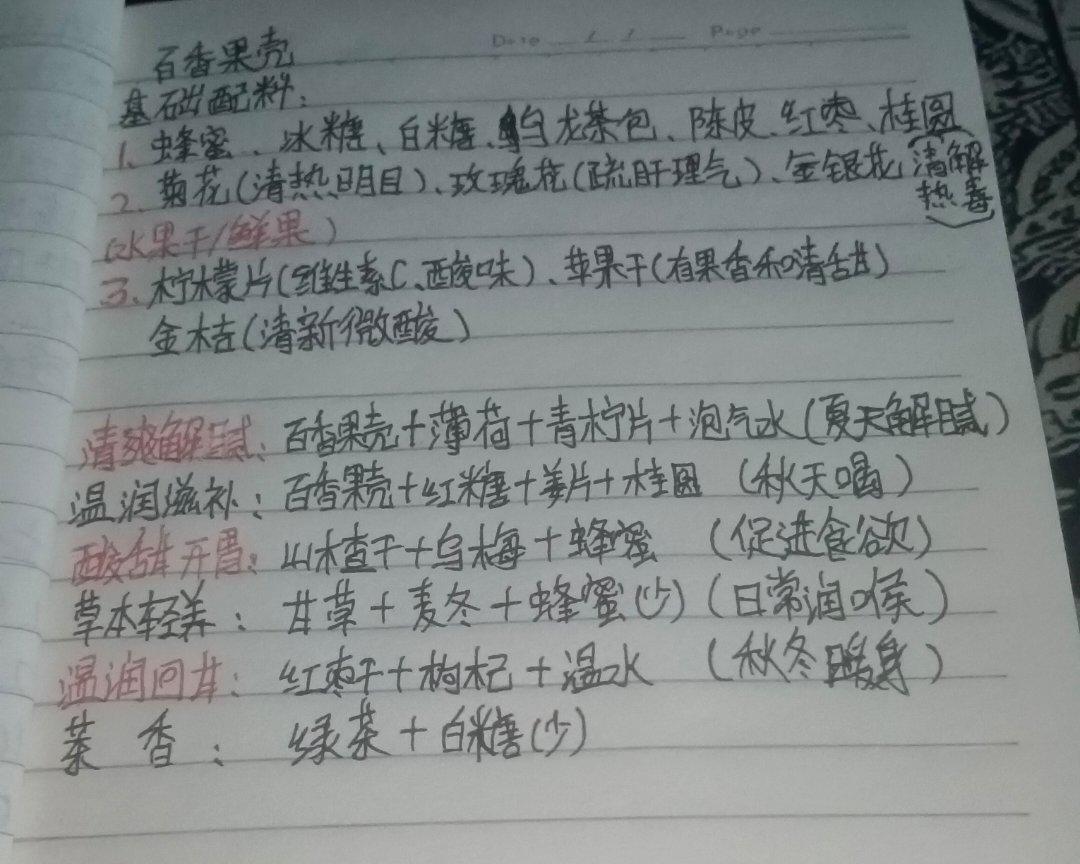 Date / / Page
百香果壳
基础配料:
1. 蜂蜜、冰糖、白糖、乌龙茶包、陈皮、红枣、桂圆
2. 菊花(清热明目)、玫瑰花(疏肝理气)、金银花(清热解毒)
(水果干/鲜果)
3. 柠檬片(维生素C、酸味)、苹果干(有果香和清甜)
金桔(清新微酸)
清爽解腻: 百香果壳+薄荷+青柠片+泡气水(夏天解腻)
温润滋补: 百香果壳+红糖+姜片+桂圆 (秋天喝)
酸甜开胃: 山楂干+乌梅+蜂蜜 (促进食欲)
草本轻养: 甘草+麦冬+蜂蜜(少)(日常润喉)
温润回甘: 红枣干+枸杞+温水 (秋冬暖身)
茶香: 绿茶+白糖(少)